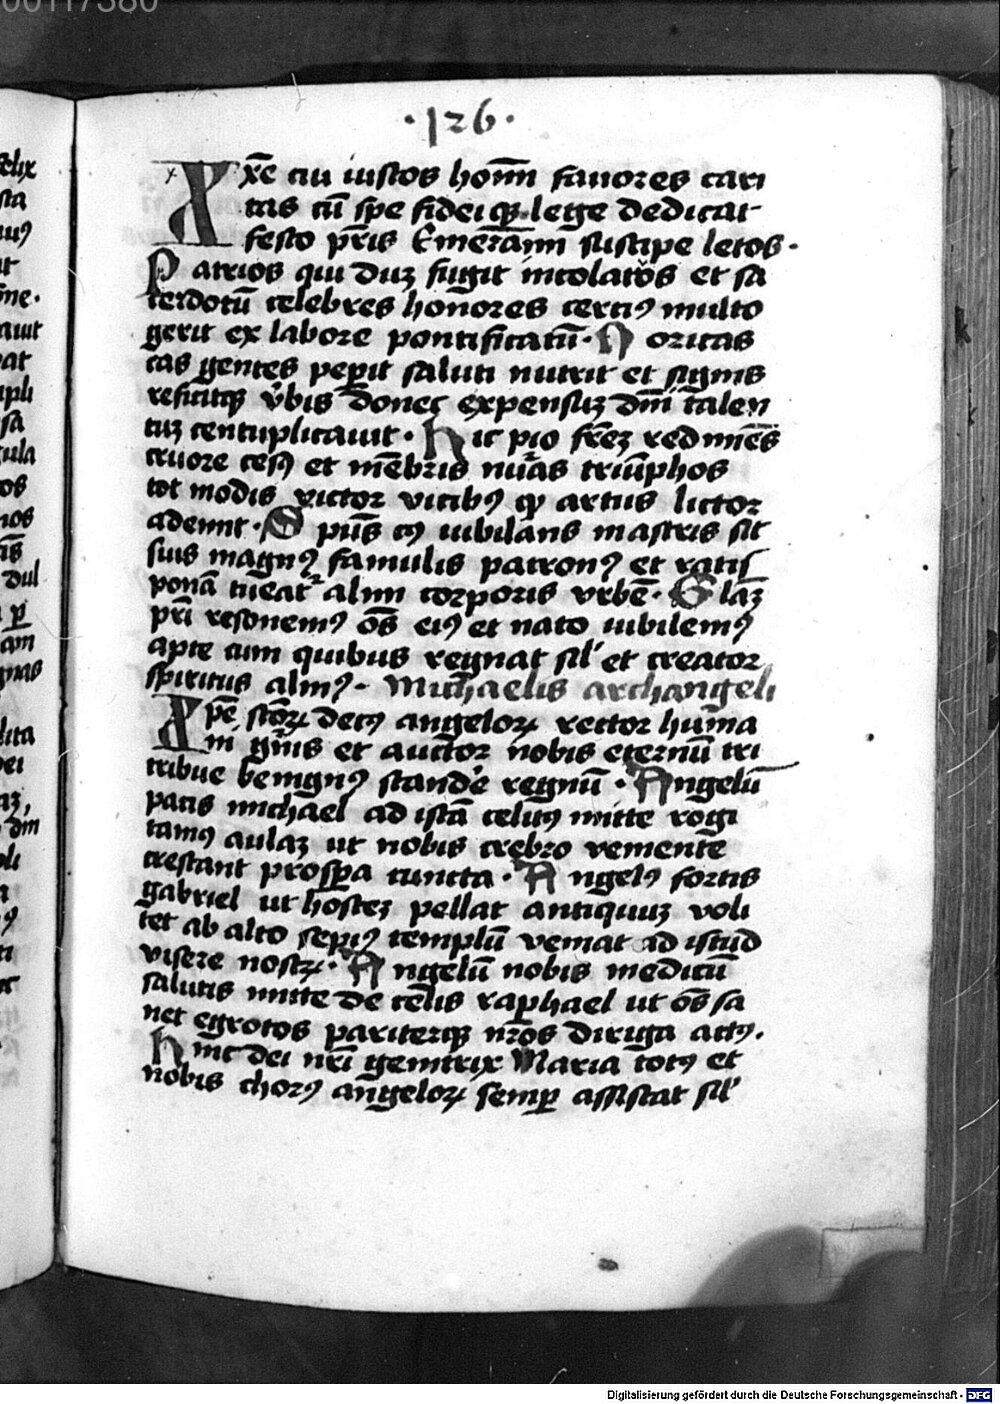 00117380
·126·
Xp̄e cui iustos hom̄n fauores cari
tas cū spe fidei q̄ lege dedicat
festo p̄ris Emerām̄i suscipe letos·
Patrios qui duꝫ fugit incolatos et sa
cerdotū celebres honores cerciꝰ multo
gerit ex labore pontificatū· Noricas
cas gentes peperit saluti nutrit et signis
reficitqꝫ v̄bis donec expensuꝫ dn̄i talen
tuꝫ centuplicauit· Hic pio fr̄eꝫ redimēs
cruore cesꝰ et mēbris miras triūphos
tot modis victor vicibꝰ qꝫ artus lictor
ademit· Sp̄us cꝰ iubilans in astris sit
suis magnꝰ famulis patronꝰ et ratis
ponā tueat᷑ almi corporis vrbē· Glāꝫ
pri resonemꝰ oēs eiꝰ et nato iubilemꝰ
apte cum quibus regnat sil' et creator
spiritus almꝰ· Michaelis archangeli
Xpē sctōꝝ decꝰ angeloꝝ rector huma
ni gn̄is et auctor nobis eternū tri
tribue benignꝰ scandere regnū· Angelū
pacis michael ad istā celitꝰ mitte rogi
tamꝰ aulaꝫ ut nobis crebro veniente
crescant prospera cuncta· Angelꝰ fortis
gabriel ut hosteꝫ pellat antiquuꝫ voli
tet ab alto sepiꝰ templū veniat ad istud
visere nostꝝ· Angelū nobis medicū
salutis mitte de celis raphael ut oēs sa
net egrotos pariterqꝫ nr̄os diriga actꝰ·
Hinc dei nr̄i genitrix Maria totꝰ et
nobis chorꝰ angeloꝝ semper assistat sil'
Digitalisierung gefördert durch die Deutsche Forschungsgemeinschaft · DFG